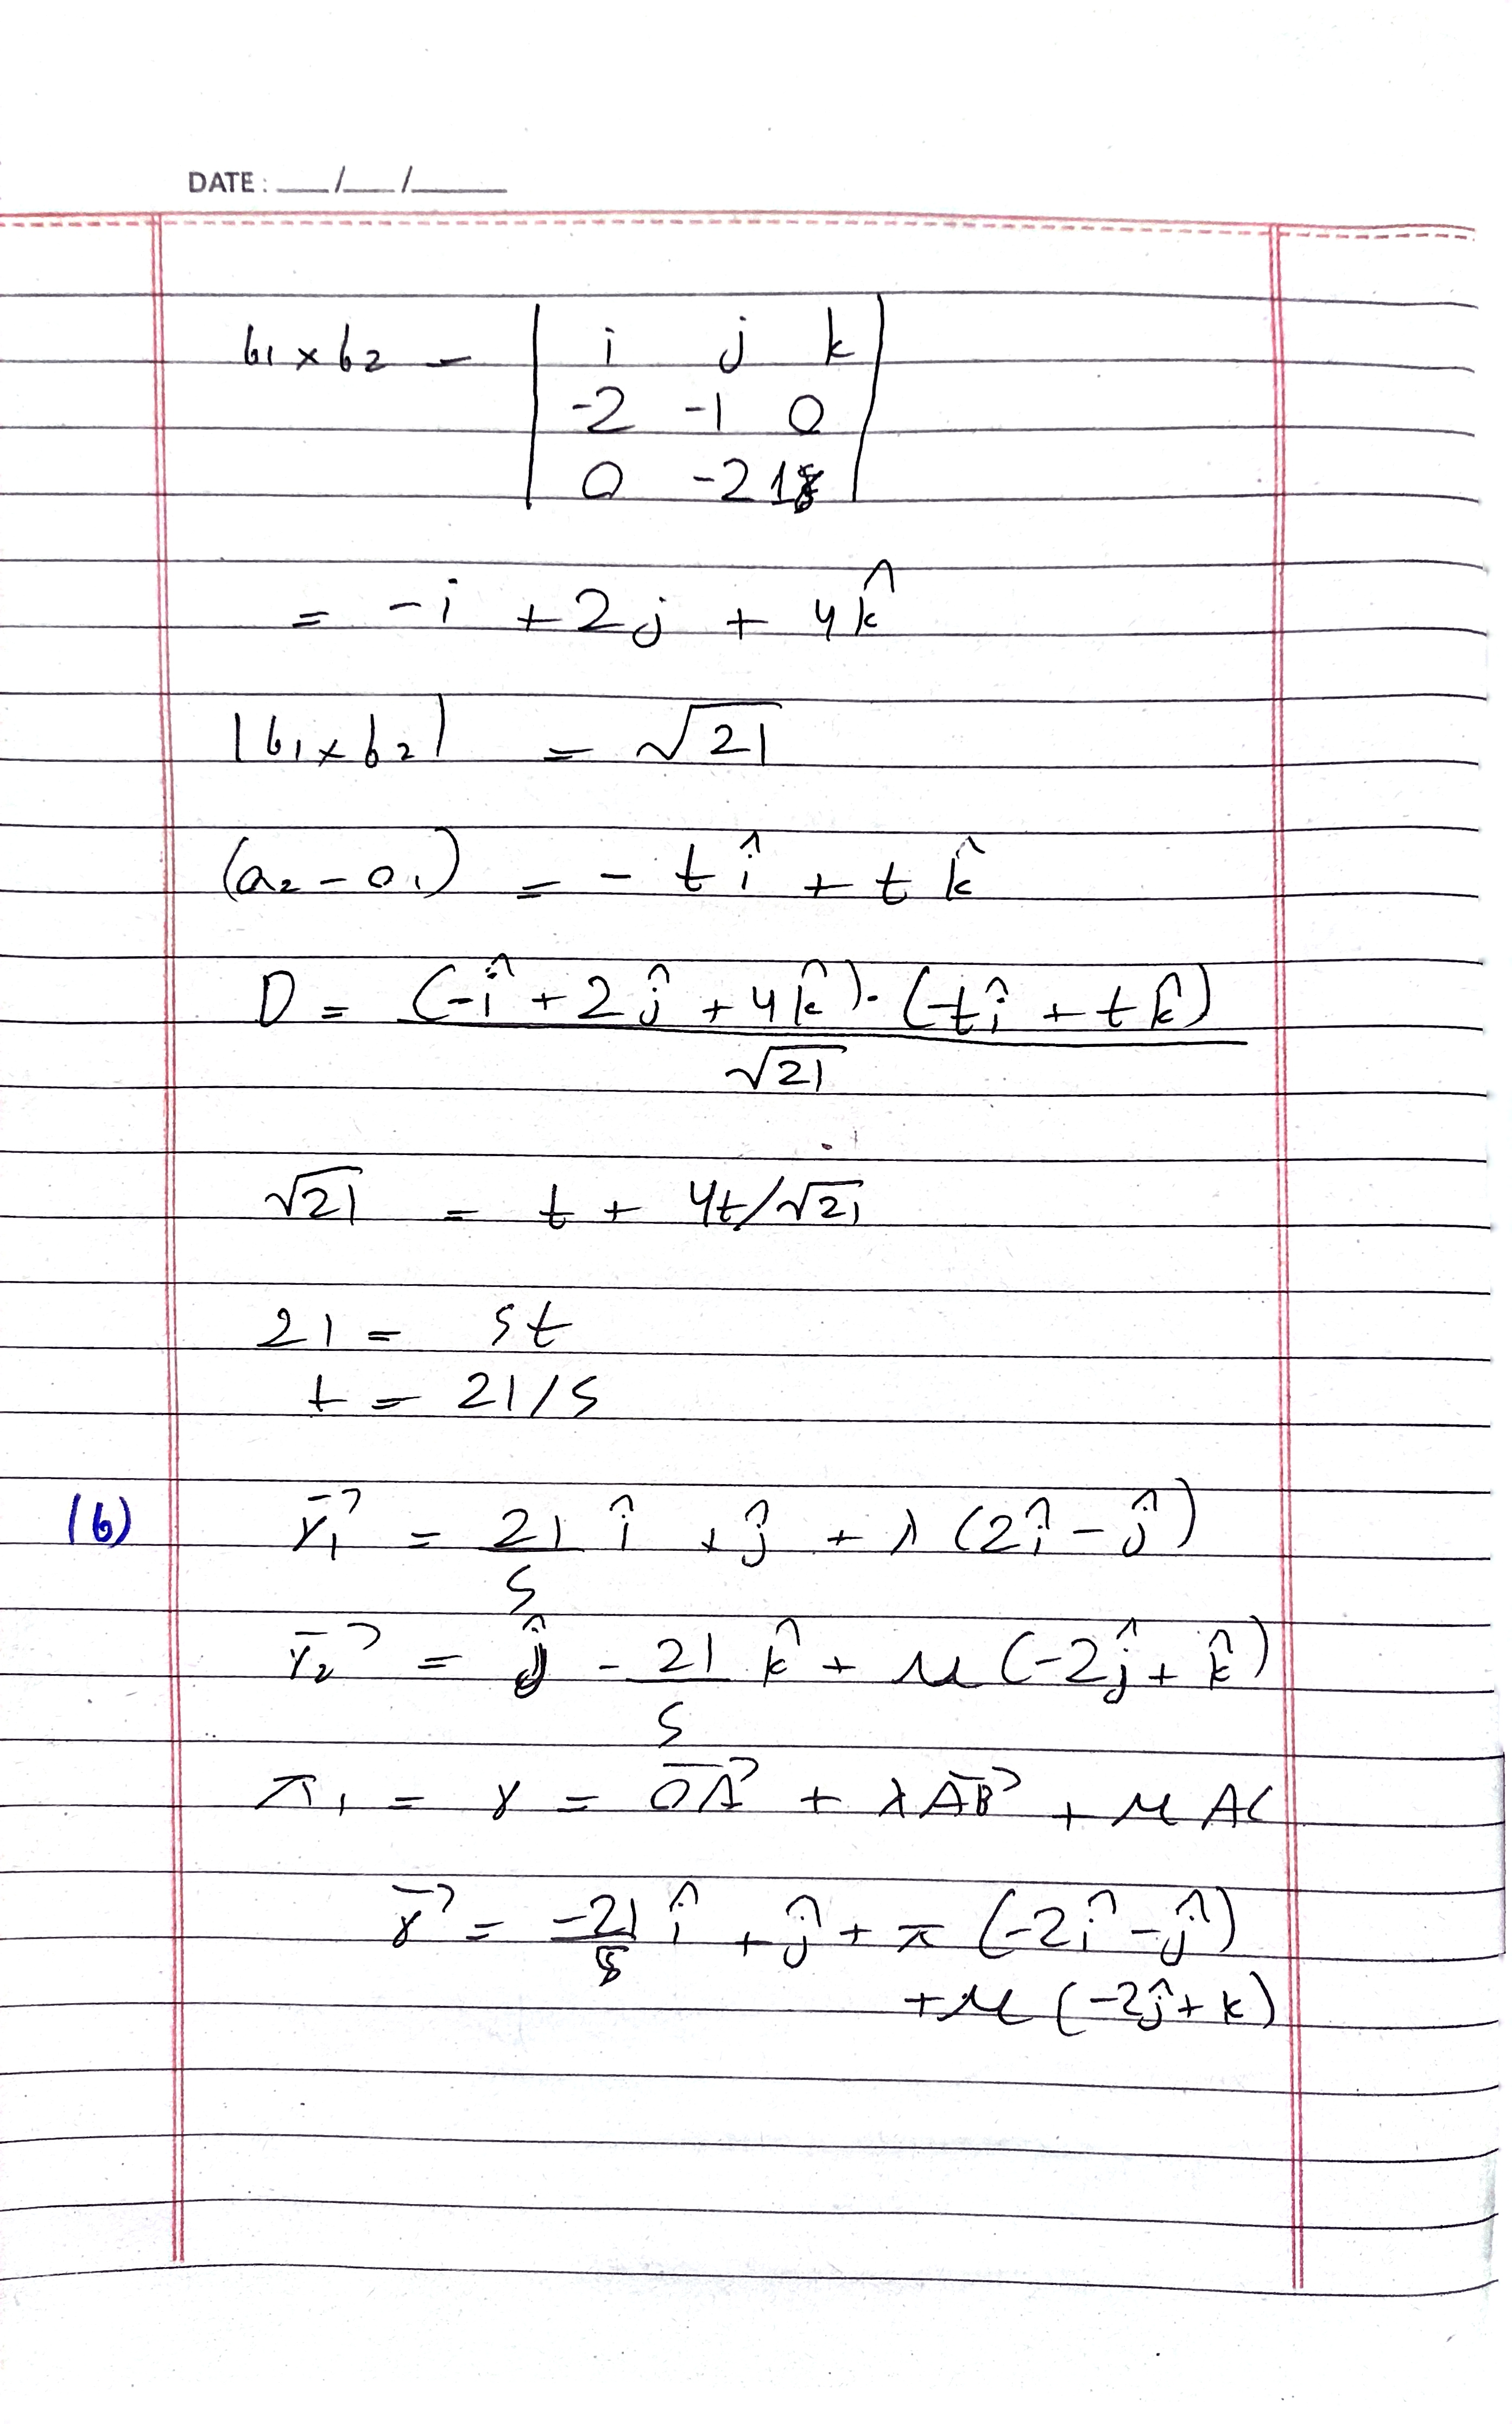 DATE : __/__/____
b1 x b2 = | i j k |
| -2 -1 0 |
| 0 -2 1 |
= -i + 2j + 4k̂
|b1 x b2| = √21
(a2 - a1) = - t î + t k̂
D = (-î + 2ĵ + 4k̂) · (-tî + t k̂)
√21
√21 = t + 4t/√21
21 = 5t
t = 21/5
(b) r⃗1 = 21/5 î + ĵ + λ (2î - ĵ)
r⃗2 = ĵ - 21/5 k̂ + μ (-2ĵ + k̂)
π1 = r = OA⃗ + λ AB⃗ + μ AC
r⃗ = -21/5 î + ĵ + π (-2î - ĵ)
+ μ (-2ĵ + k)